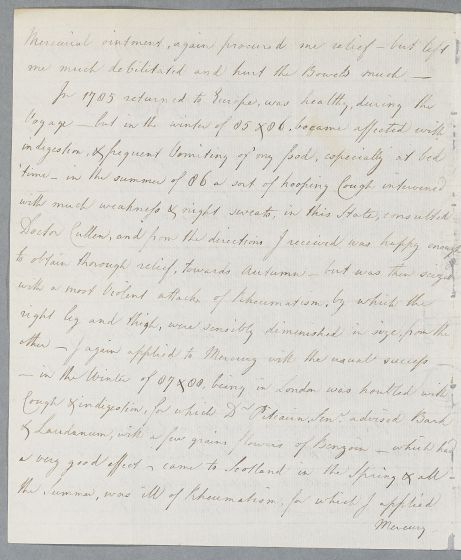 Mercurial ointment, again procured me relief – but left
me much debilitated and hurt the Bowels much –
In 1785 returned to Europe, was healthy, during the
Voyage – but in the winter of 85 & 86. became affected with
indigestion, & frequent Vomiting of my food, especially at bed
time – in the summer of 86 a sort of hooping Cough intervened
with much weakness & night sweats, in this State, consulted
Doctor Cullen, and from the directions I received was happy enough
to obtain thorough relief, towards Autumn – but was then seized
with a most Violent attack of Rheumatism, by which the
right leg and thigh, were sensibly diminished in size, from the
other – I again applied to Mercury with the usual success –
– in the Winter of 87 & 88, being in London was troubled with
Cough & indigestion, for which Dr. Pitcairn, Senr. advised Bark
& Laudanum, with a few grains flowers of Benzoin – which had
a very good effect – came to Scotland in the Spring & all
the Summer, was ill of Rheumatism, for which I applied
Mercury